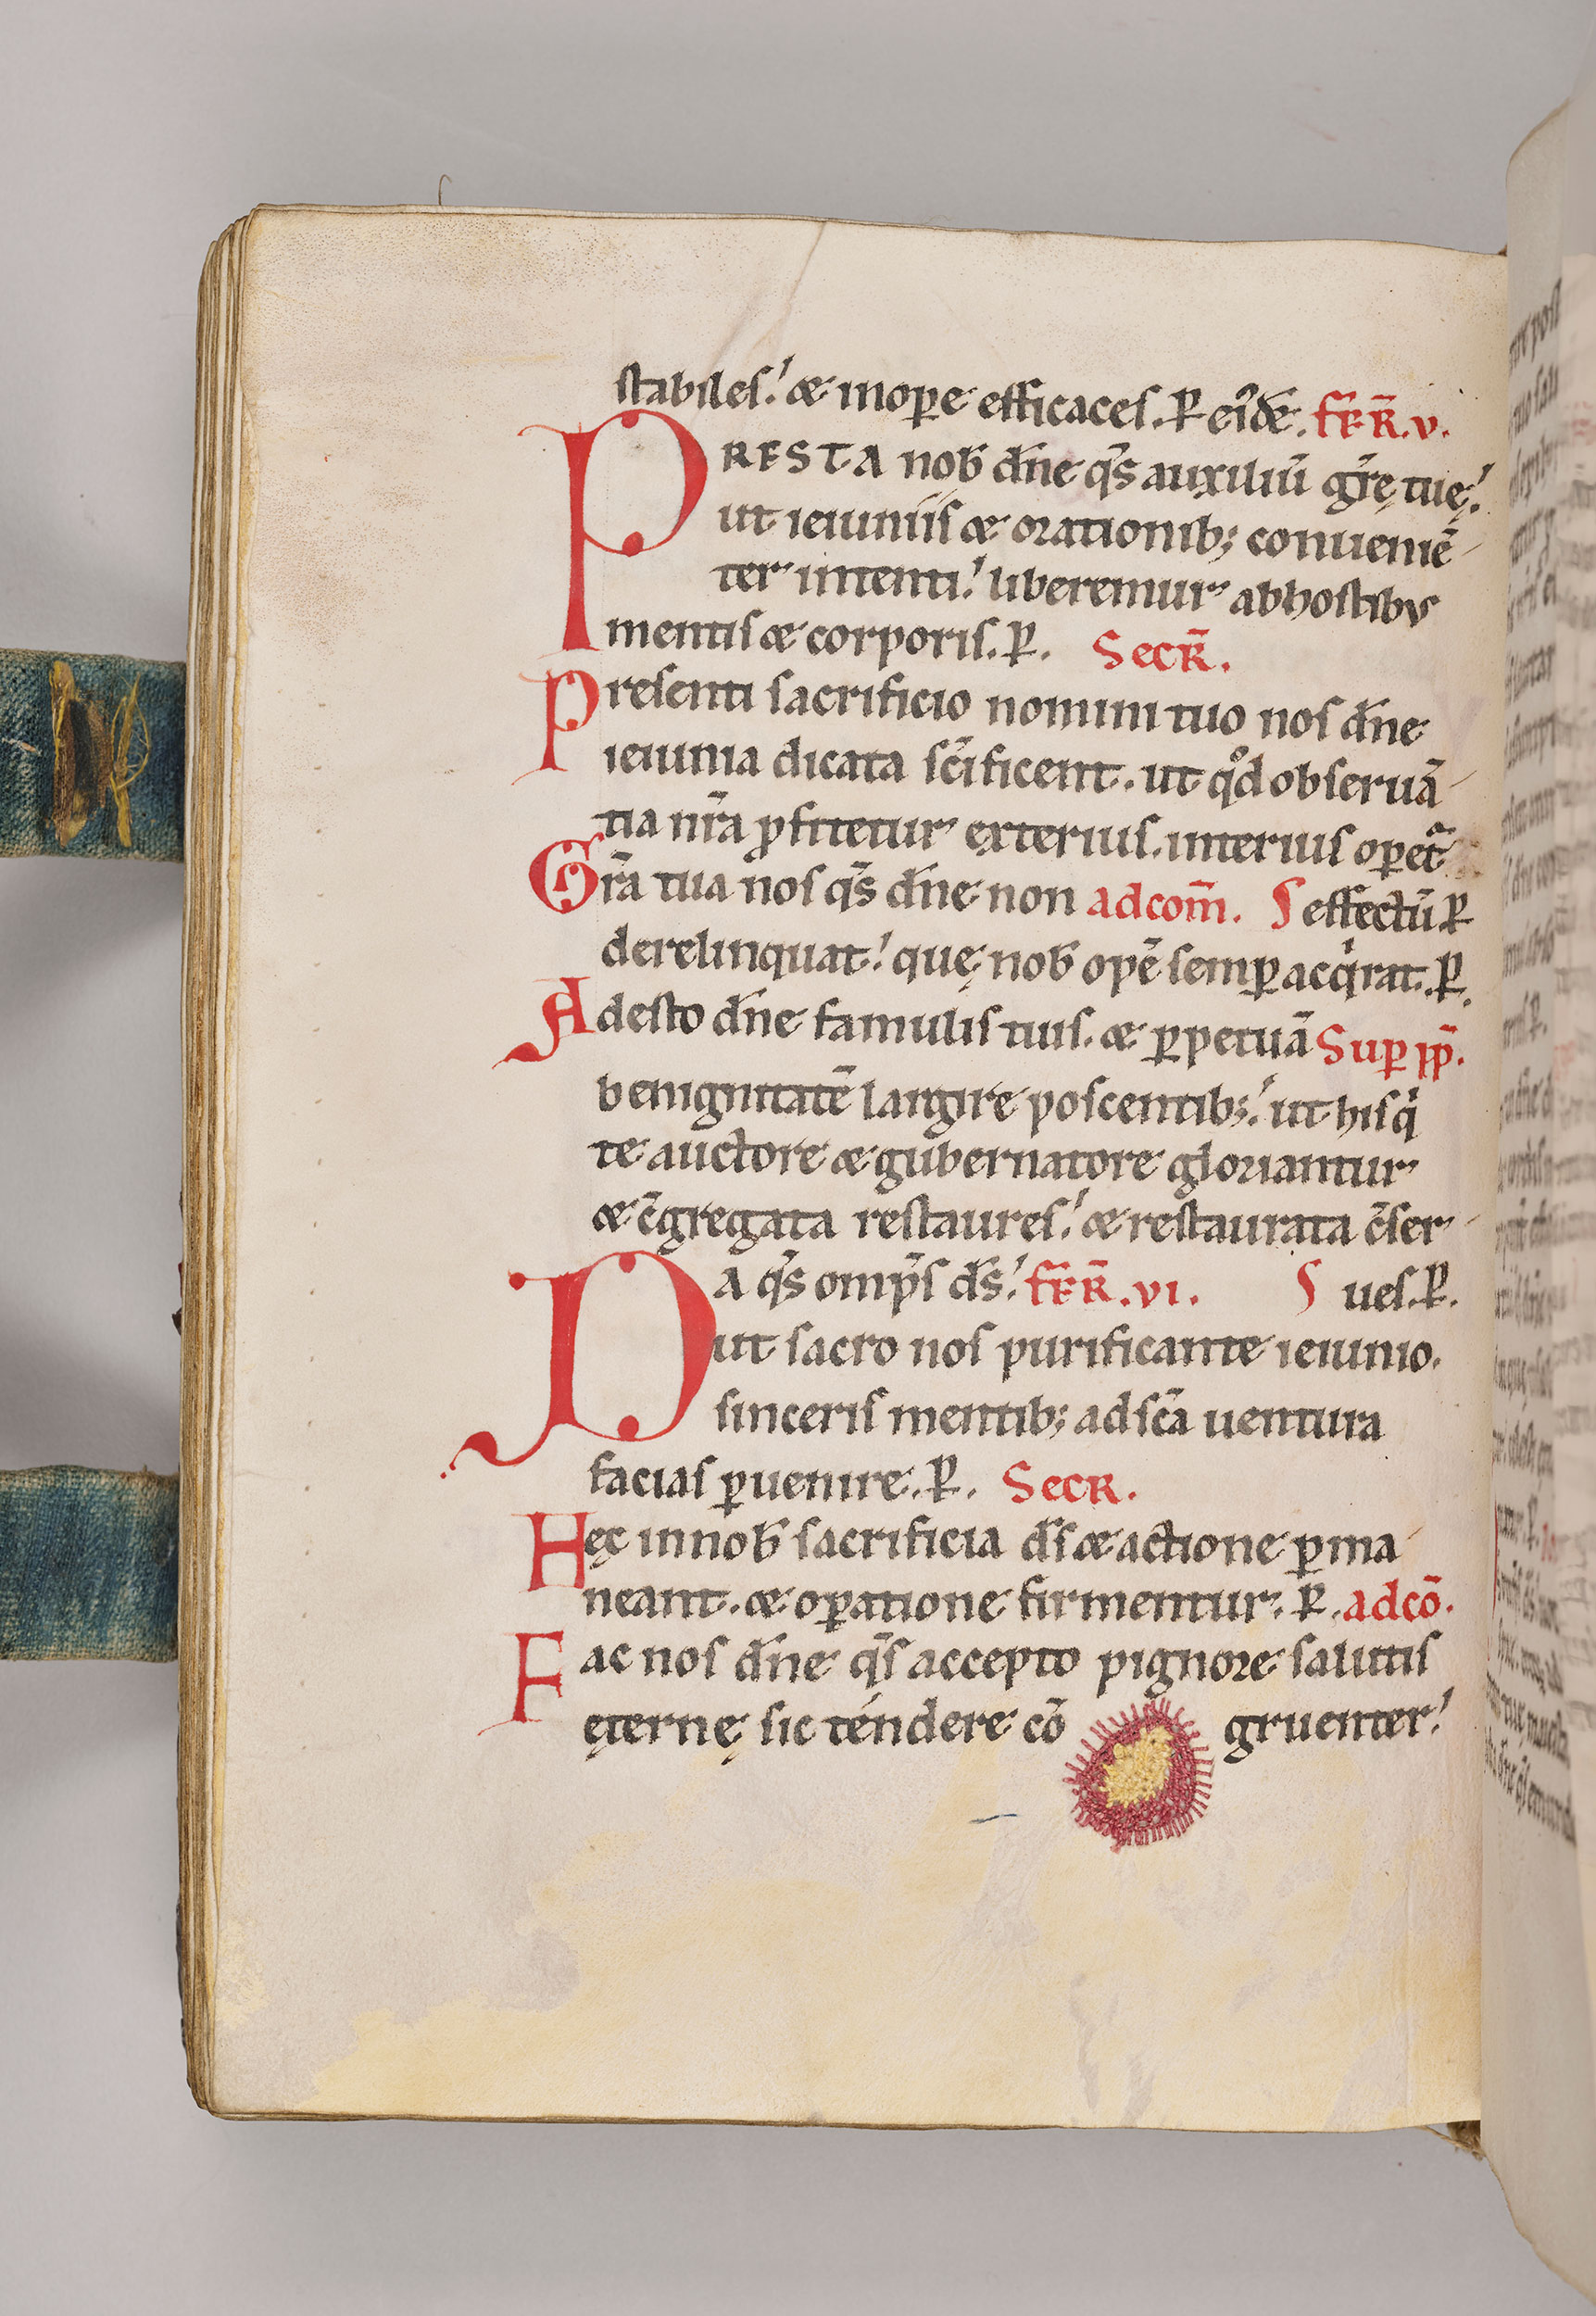 stabiles. & in ope efficaces. P eūdē. FER̄. V.
PRESTA nob̄ dn̄e qs̄ auxiliū gr̄ę tuę.
ut ieiuniis & orationib; conueniē᷎
ter intenti. liberemur ab hostibus
mentis & corporis. P. SECR̄.
Presenti sacrificio nomini tuo nos dn̄e
ieiunia dicata sc̄ificent. ut qd̊ obseruā
tia nr̄a ꝓfitetur exterius. interius opet᷑
Gr̄a tua nos qs̄ dn̄e non ad com̄. effectū P
derelinquat. quę nob̄ opē semꝑ acqͥrat. P.
Adesto dn̄e famulis tuis. & ꝑpetuā Suꝑ pp̄.
benignitatē largire poscentib;. ut his qͥ
te auctore & gubernatore gloriantur
& c̄gregata restaures. & restaurata c̄ser
DA qs̄ omp̄s ds̄. FER̄. VI. ues. P.
ut sacro nos purificante ieiunio.
sinceris mentib; ad sc̄a uentura
facias ꝑuenire. P. SECR.
Hęc in nob̄ sacrificia ds̄ & actione ꝑma
neant. & oꝑatione firmentur. P. ad cō.
Fac nos dn̄e qs̄ accepto pignore salutis
ęternę sic téndere cō gruenter.